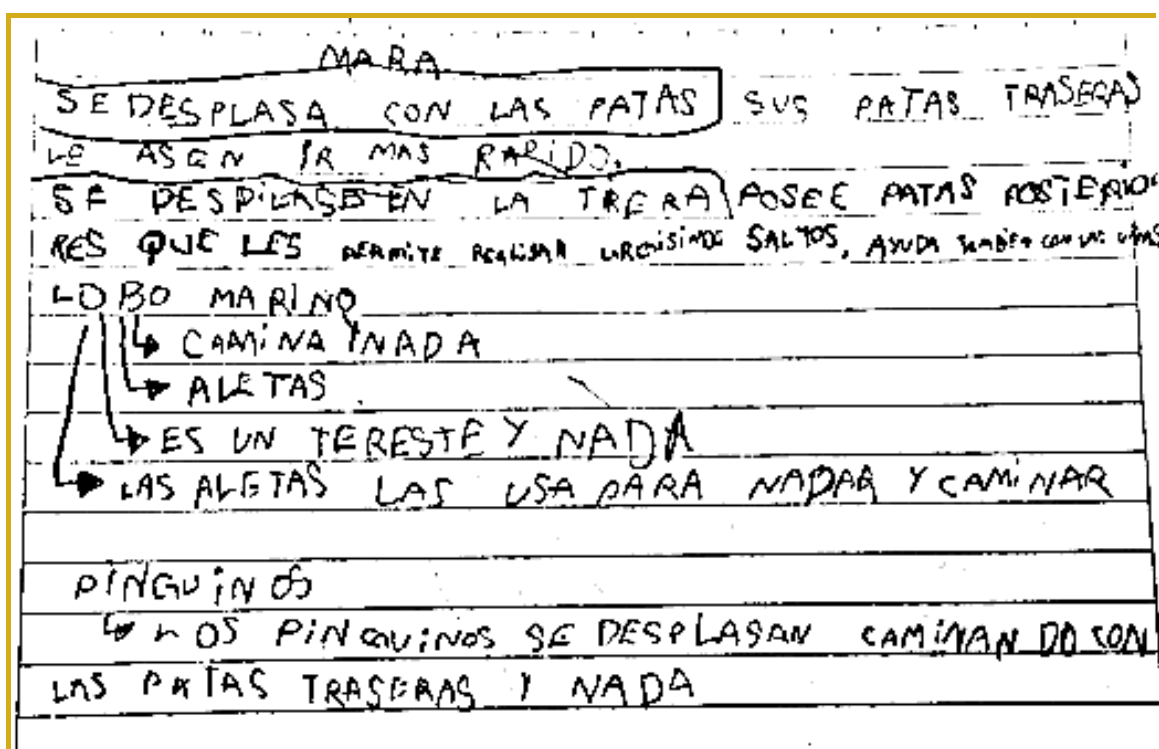 MARA
SE DESPLASA CON LAS PATAS SUS PATAS TRASERAS
LE ASEN IR MAS RAPIDO.
SE DESPLASB EN LA TRERA POSEE PATAS POSTERIO
RES QUE LES PERMITE REALISAR SALTOS, AYUDA TAMBIEN CON LAS UÑAS
LOBO MARINO
CAMINA Y NADA
ALETAS
ES UN TERESTE Y NADA
LAS ALETAS LAS USA PARA NADAR Y CAMINAR
PINGUINOS
LOS PINGUINOS SE DESPLASAN CAMINANDO CON
LAS PATAS TRASERAS Y NADA